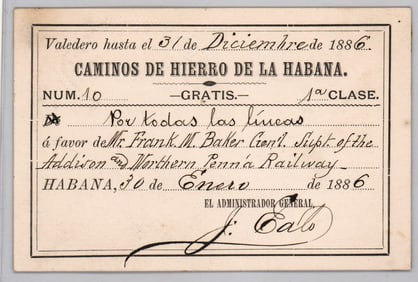 Valedero hasta el 31 de Diciembre de 1886.
CAMINOS DE HIERRO DE LA HABANA.
NUM. 10 —GRATIS.— 1ª CLASE.
Por todas las líneas
á favor de Mr. Frank. M. Baker Genl. Supt. of the
Addison and Northern Penn'a Railway
HABANA, 30 de Enero de 1886
EL ADMINISTRADOR GENERAL,